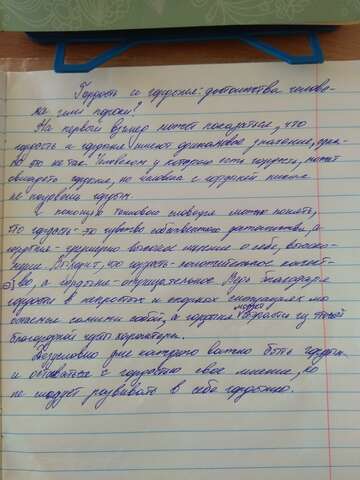 Гордость и гордыня: достоинства челове-
ка или пороки?
На первый взгляд может показаться, что
гордость и гордыня имеют одинаковое значение, одна-
ко это не так. Человеком у которого есть гордость, может
овладеть гордыня, но человека с гордыней никогда
не посрамит гордость.
С помощью толкового словаря можно понять,
что гордость - то чувство собственного достоинства, а
гордыня - чрезмерно высокое мнение о себе, высоко-
мерие. Выходит, что гордость - положительное качест-
во, а гордыня - отрицательное. Ведь благодаря
гордости в непростых и опасных ситуациях мы
остаёмся самими собой, а гордыня может вырасти из такой
благородной черты характера.
Безусловно для каждого важно быть гордым
и отстаивать с гордостью свое мнение, но
не следует развивать в себе гордыню.